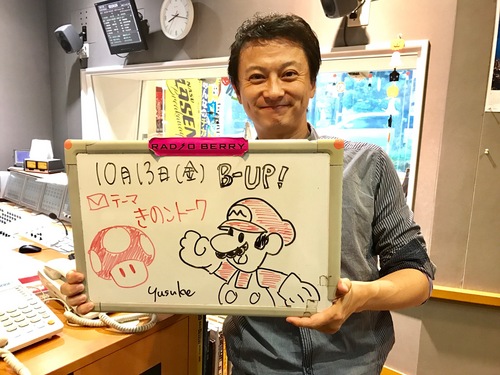 RADIO BERRY
10月13日(金) B-UP!
テーマ
きのコトーク
M
Yusuke